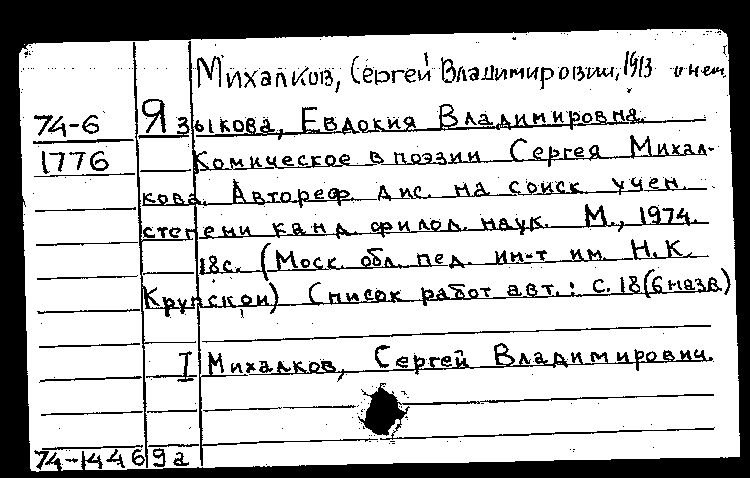 Михалков, Сергей Владимирович, 1913 о нем
74-6 Языкова, Евдокия Владимировна.
1776 Комическое в поэзии Сергея Михал-
кова. Автореф. дис. на соиск. учен.
степени канд. филол. наук. М., 1974.
18с. (Моск. обл. пед. ин-т им. Н.К.
Крупской) Список работ авт.: с.18(6 назв.)
I Михалков, Сергей Владимирович.
74-14469а